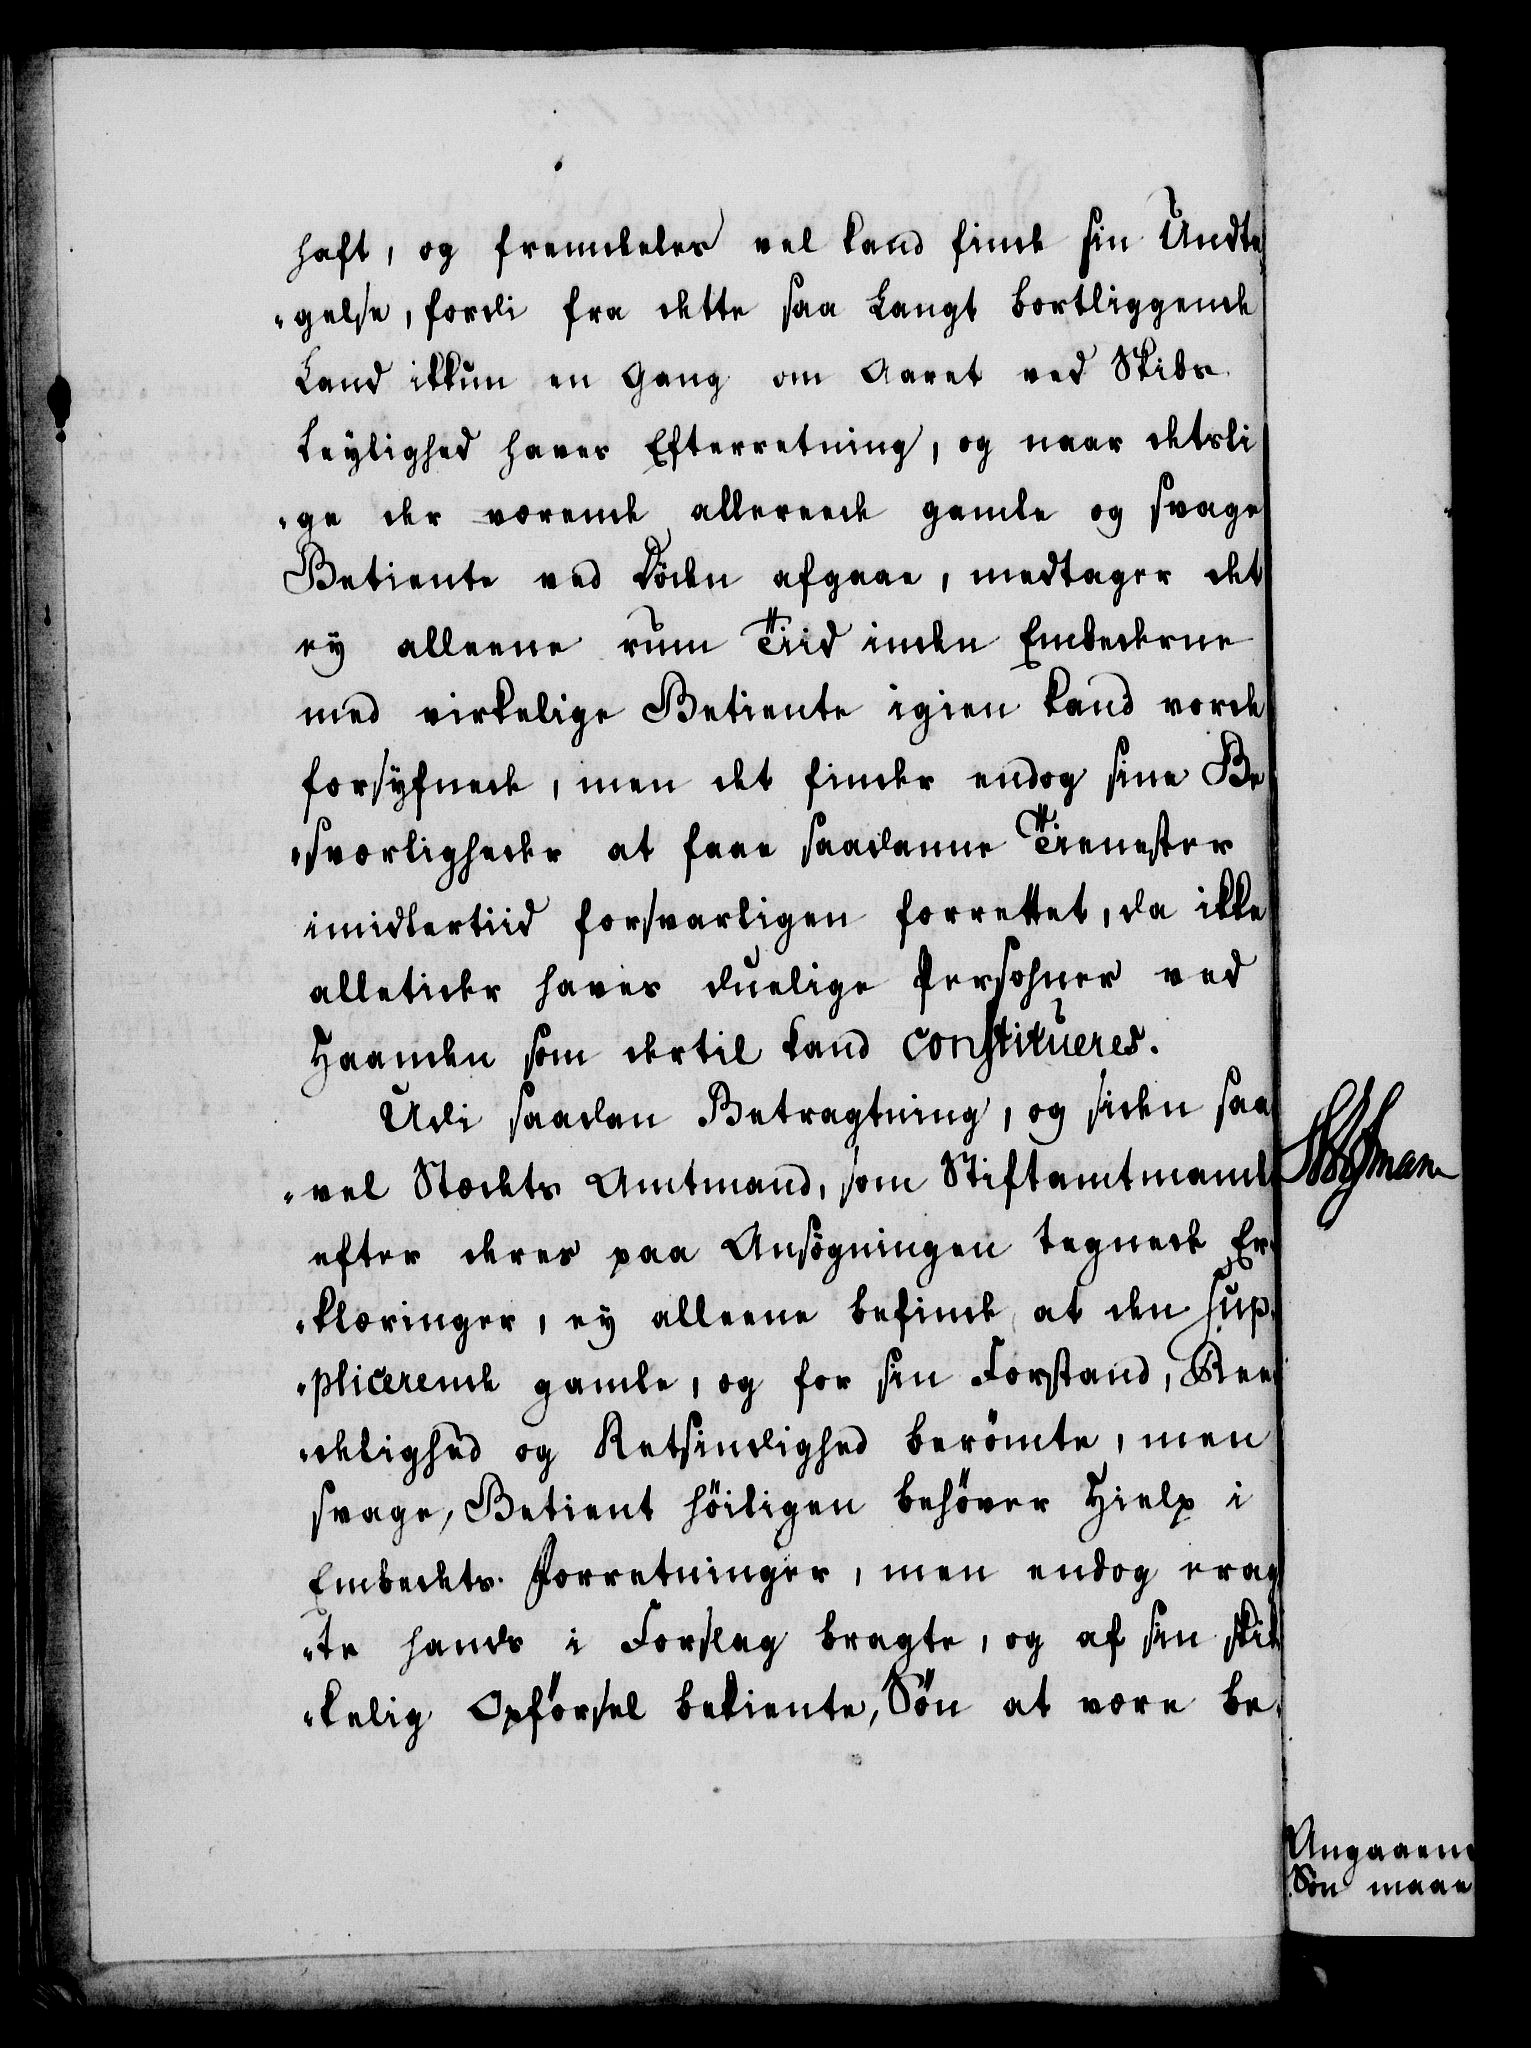 haft, og fremdeles vel kand finde sin Undta
-gelse, fordi fra dette saa langt bortliggende
Land ikkun en Gang om Aaret ved Skibs
Leylighed haves Efterretning, og naar desli
-ge der værende allereede gamle og svage
Betiente ved Døden afgaae, medtager det
ey alleene rum Tiid inden Embederne
med virkelige Betiente igien kand vorde
forsyfnede, men det finder endog sine Be
-sværligheder at faae saadanne Tienester
imidlertiid forsvarligen forrettet, da ikke
alletider haves duelige Persohner ved
Haanden som dertil kand constitueres.
Udi saadan Betragtning, og siden saa
-vel Stædets Amtmand, som Stiftamtmand
efter deres paa Ansøgningen tegnede Er-
-klæringer, ey alleene befinde at den sup-
-plicerende gamle, og for sin Forstand, Ree
-delighed og Retsindighed berömte, men
svage, Betient höiligen behöver Hielp i
Embedets Forretninger, men endog erag
-te hands i Forslag bragte, og af sin skik
-kelig Opförsel bekiente, Søn at være be-
Angaaen
Søn maae